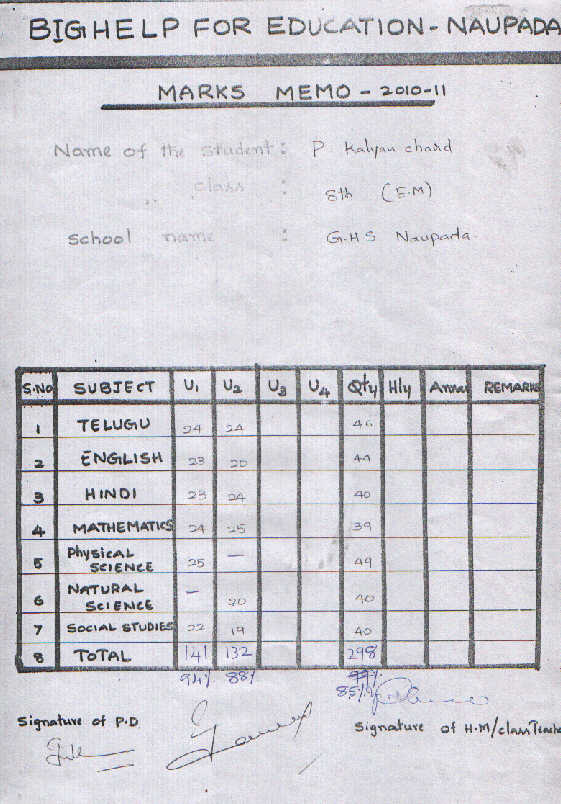 BIGHELP FOR EDUCATION - NAUPADA
MARKS MEMO - 2010-11
Name of the student : P Kalyan chand
class : 8th (E.M)
School name : G.H.S Naupada.
S.No SUBJECT U1 U2 U3 U4 Qty Hly Annu REMARKS
1 TELUGU 24 24 46
2 ENGLISH 23 20 44
3 HINDI 23 24 40
4 MATHEMATICS 24 25 39
5 Physical SCIENCE 25 — 49
6 NATURAL SCIENCE — 20 40
7 SOCIAL STUDIES 22 19 40
8 TOTAL 141 132 298
94% 88% 85%
Signature of P.D
Signature of H.M/class Teache